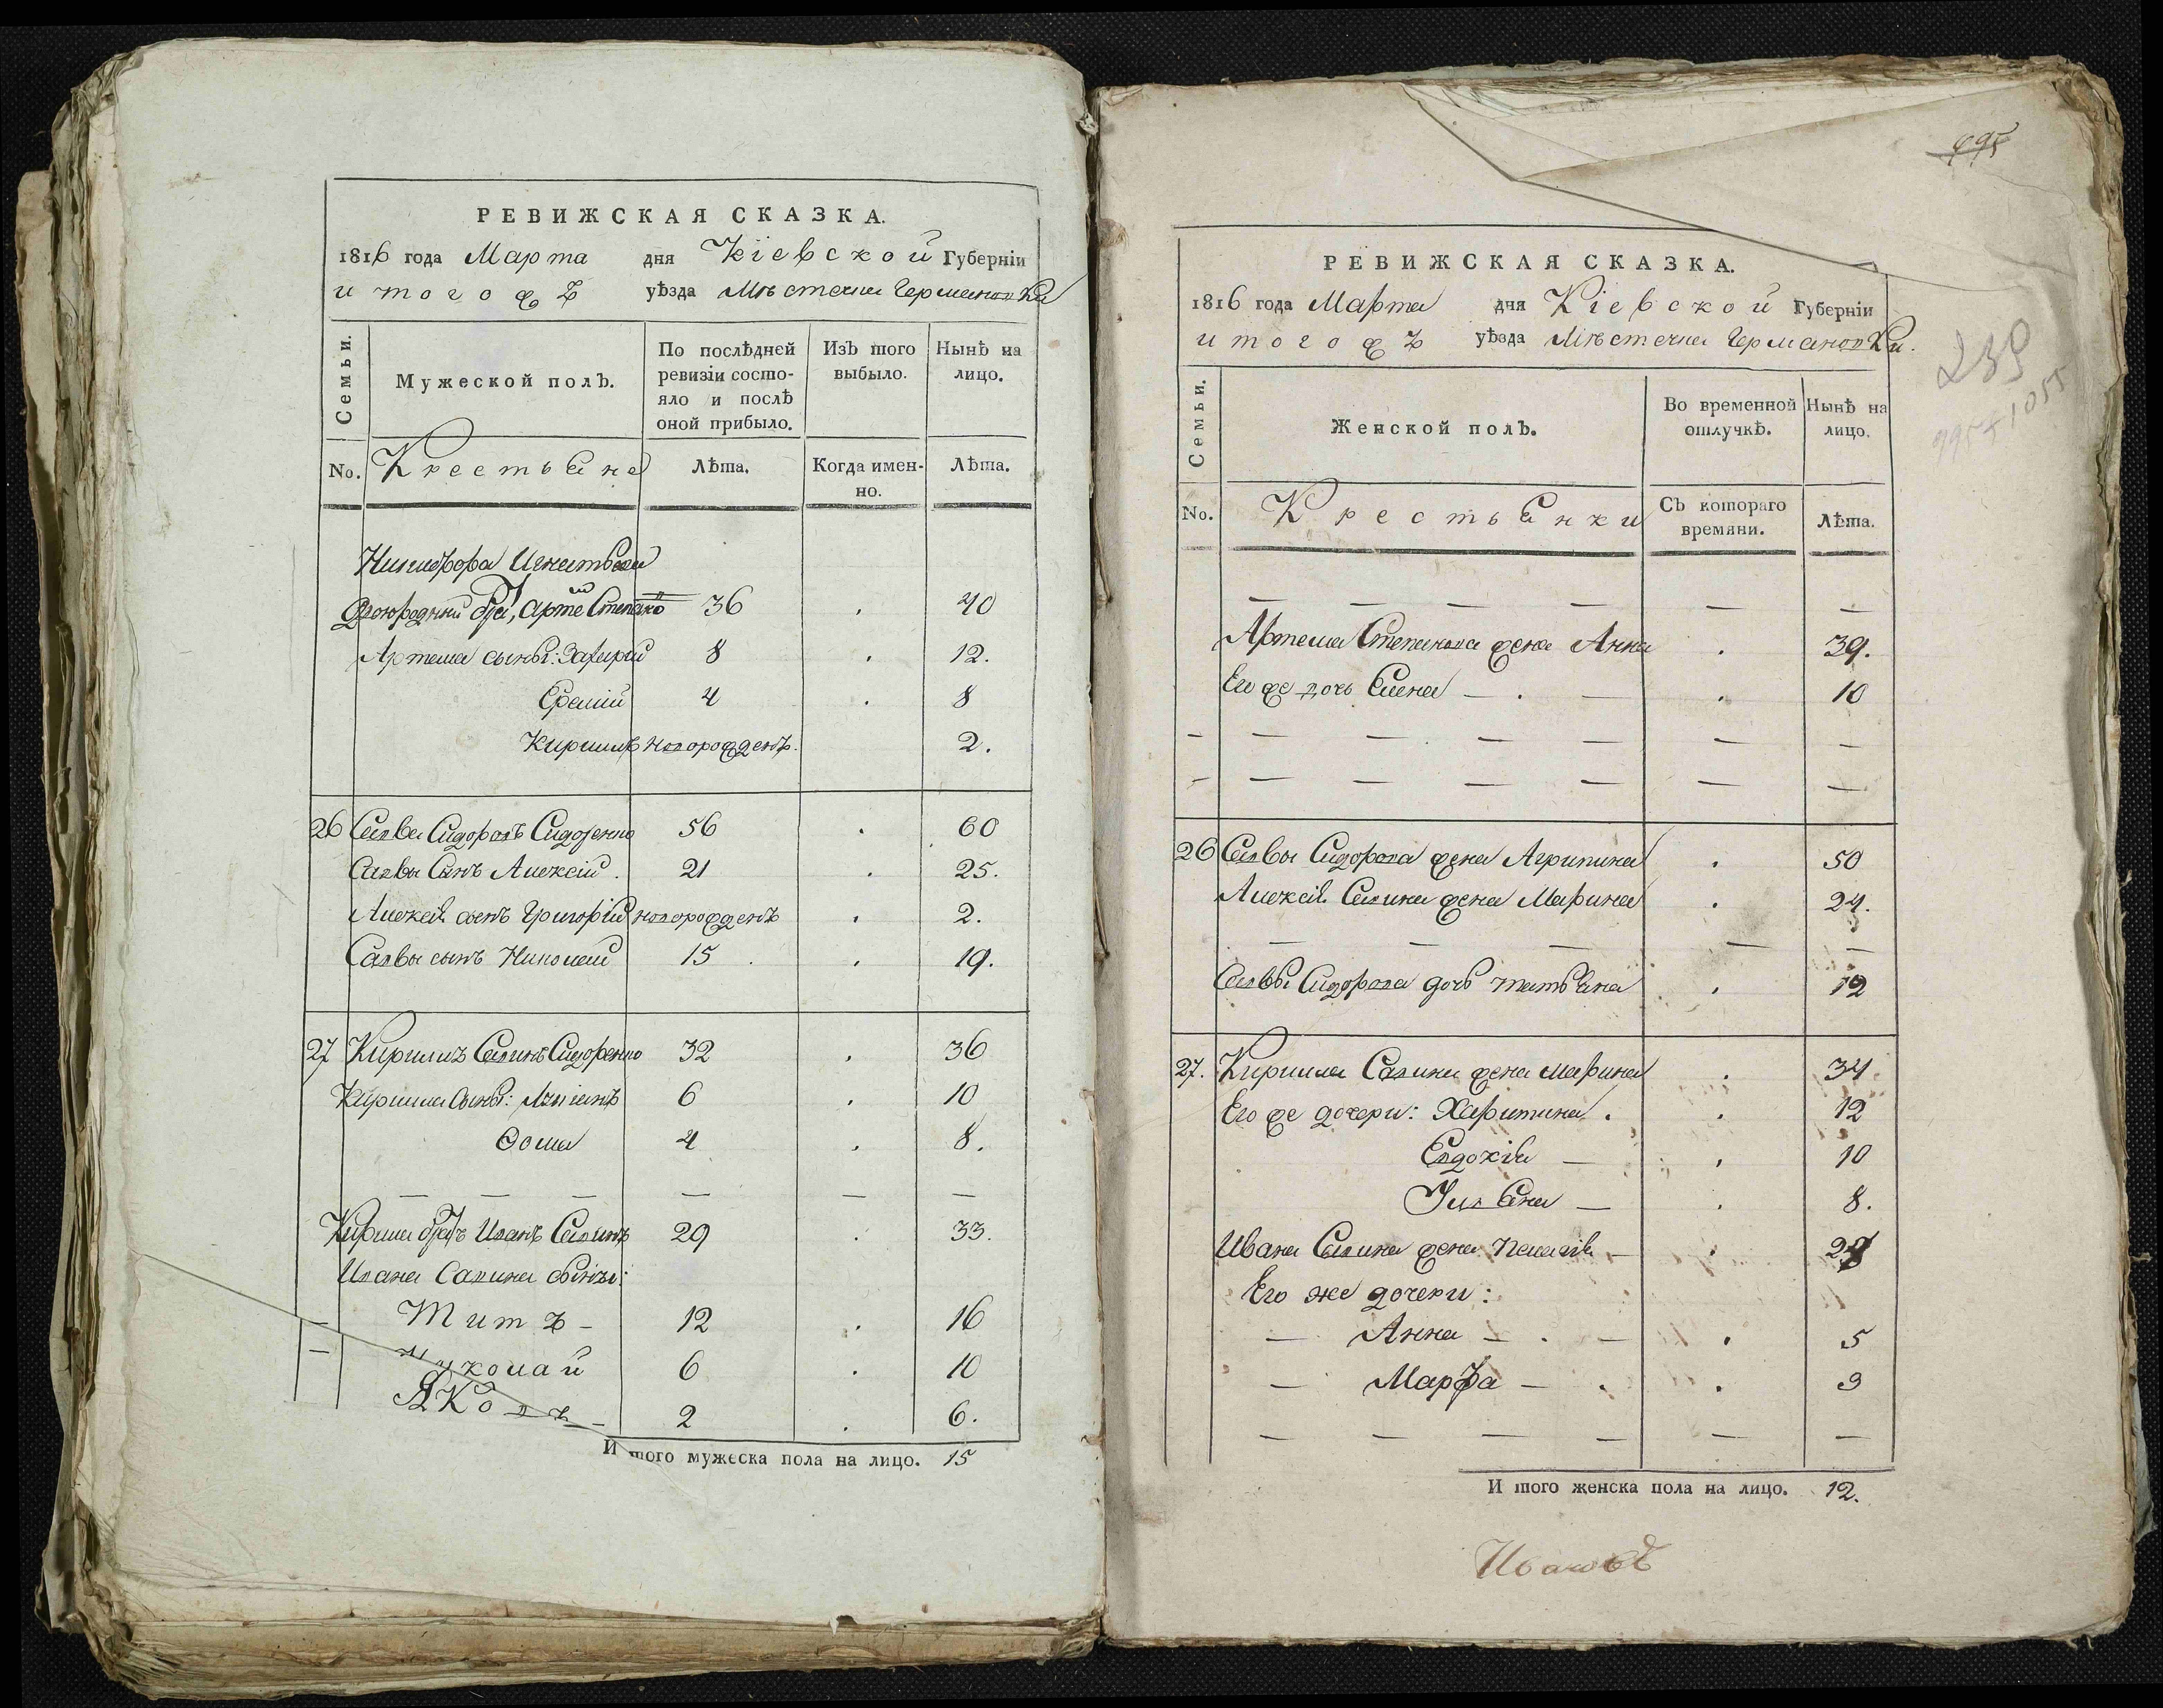 РЕВИЖСКАЯ СКАЗКА.
1816 года Марта дня Кіевской Губерніи
и тогожъ уѣзда Мѣстечка Германовки
Семьи.
Мужеской полъ.
По послѣдней ревизіи состояло и послѣ оной прибыло.
Изъ того выбыло.
Нынѣ на лицо.
No. Крестьяне Лѣта. Когда именно. Лѣта.
Никифора Игнатьева
двоюродный братъ, Артемъ Степановъ 36 . 40
Артема сыны: Захарій 8 . 12.
Еремій 4 . 8
Кирилъ новорожденъ. 2.
26 Савва Сидоровъ Сидоренко 56 . 60
Саввы Сынъ Алексій . 21 . 25.
Алексія сынъ Григорій новорожденъ . 2.
Саввы сынъ Николай 15 . . 19.
27 Кирилъ Савинъ Сидоренко 32 . 36
Кирила Сыны: 6 . 10
Ѳома 4 . 8.
— — — — — —
Кирила братъ Иванъ Савинъ 29 . 33.
Ивана Савина сыны:
— Титъ – 12 . 16
— Николай 6 . 10
Яковъ – 2 . 6.
И того мужеска пола на лицо. 15
695
РЕВИЖСКАЯ СКАЗКА.
1816 года Марта дня Кіевской Губерніи
и тогожъ уѣзда Мѣстечка Германовки.
239
Семьи.
Женской полъ.
Во временной отлучкѣ.
Нынѣ на лицо.
No. Крестьянки Съ котораго времяни. Лѣта.
— — — — — —
Артема Степанова жена Анна . 39.
Его же дочь Елена — . — . 10
– — — — — — —
– — — — — — —
26 Саввы Сидорова жена Агрипина . 50
Алексія Савина жена Марина . 24.
— — — — —
Саввы Сидорова дочь татьяна . 12
27. Кирила Савина жена Марина . 34
Его же дочери: Харитина . . 12
Евдокія — . 10
Ульяна — . 8.
Ивана Савина жена Пелагія — .
Его же дочери:
— Анна — . — . 5
— Марфа — . . 3
— — — — — —
И того женска пола на лицо. 12.